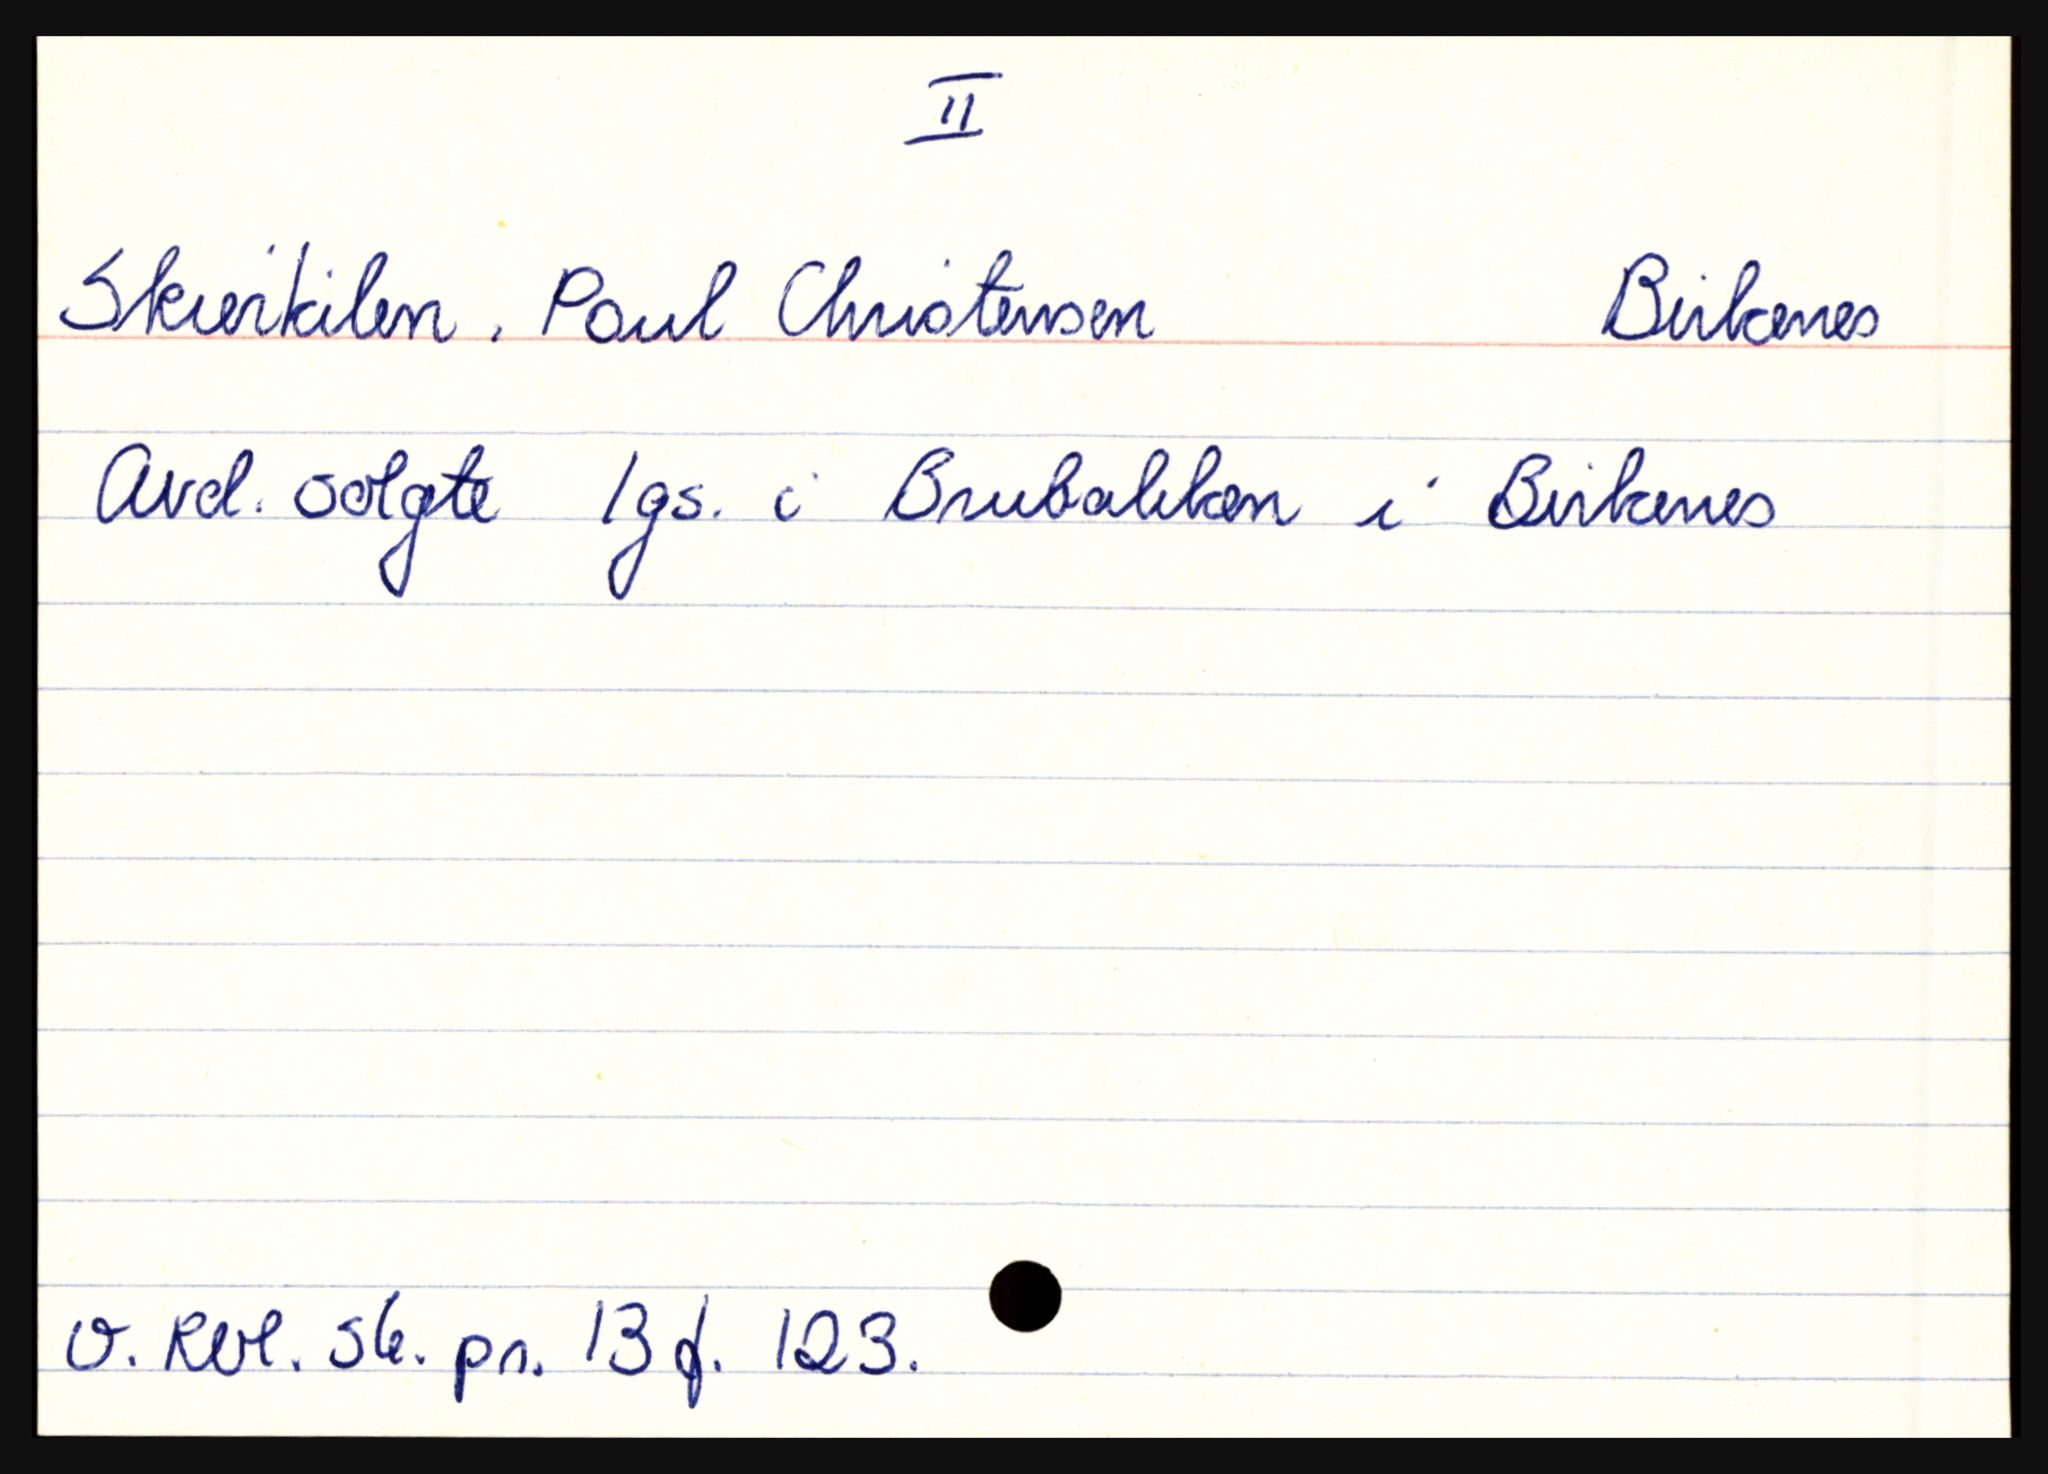 II
Skreikilen, Poul Christensen Birkenes
Avd. solgte 1gs. i Brubakken i Birkenes
v. Rbl. sk. pr. 13 f. 123.